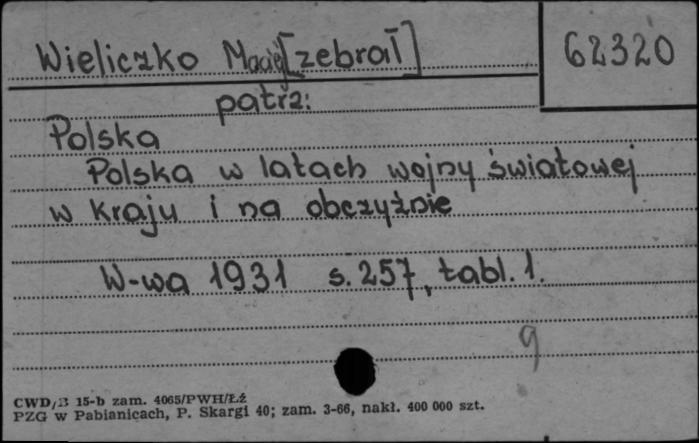 Wieliczko Maciej [zebrał]
62320
patrz:
Polska
Polska w latach wojny światowej
w kraju i na obczyźnie
W-wa 1931 s. 257, tabl. 1.
9
CWD/B 15-b zam. 4065/PWH/Łź
PZG w Pabianicach, P. Skargi 40; zam. 3-66, nakł. 400 000 szt.